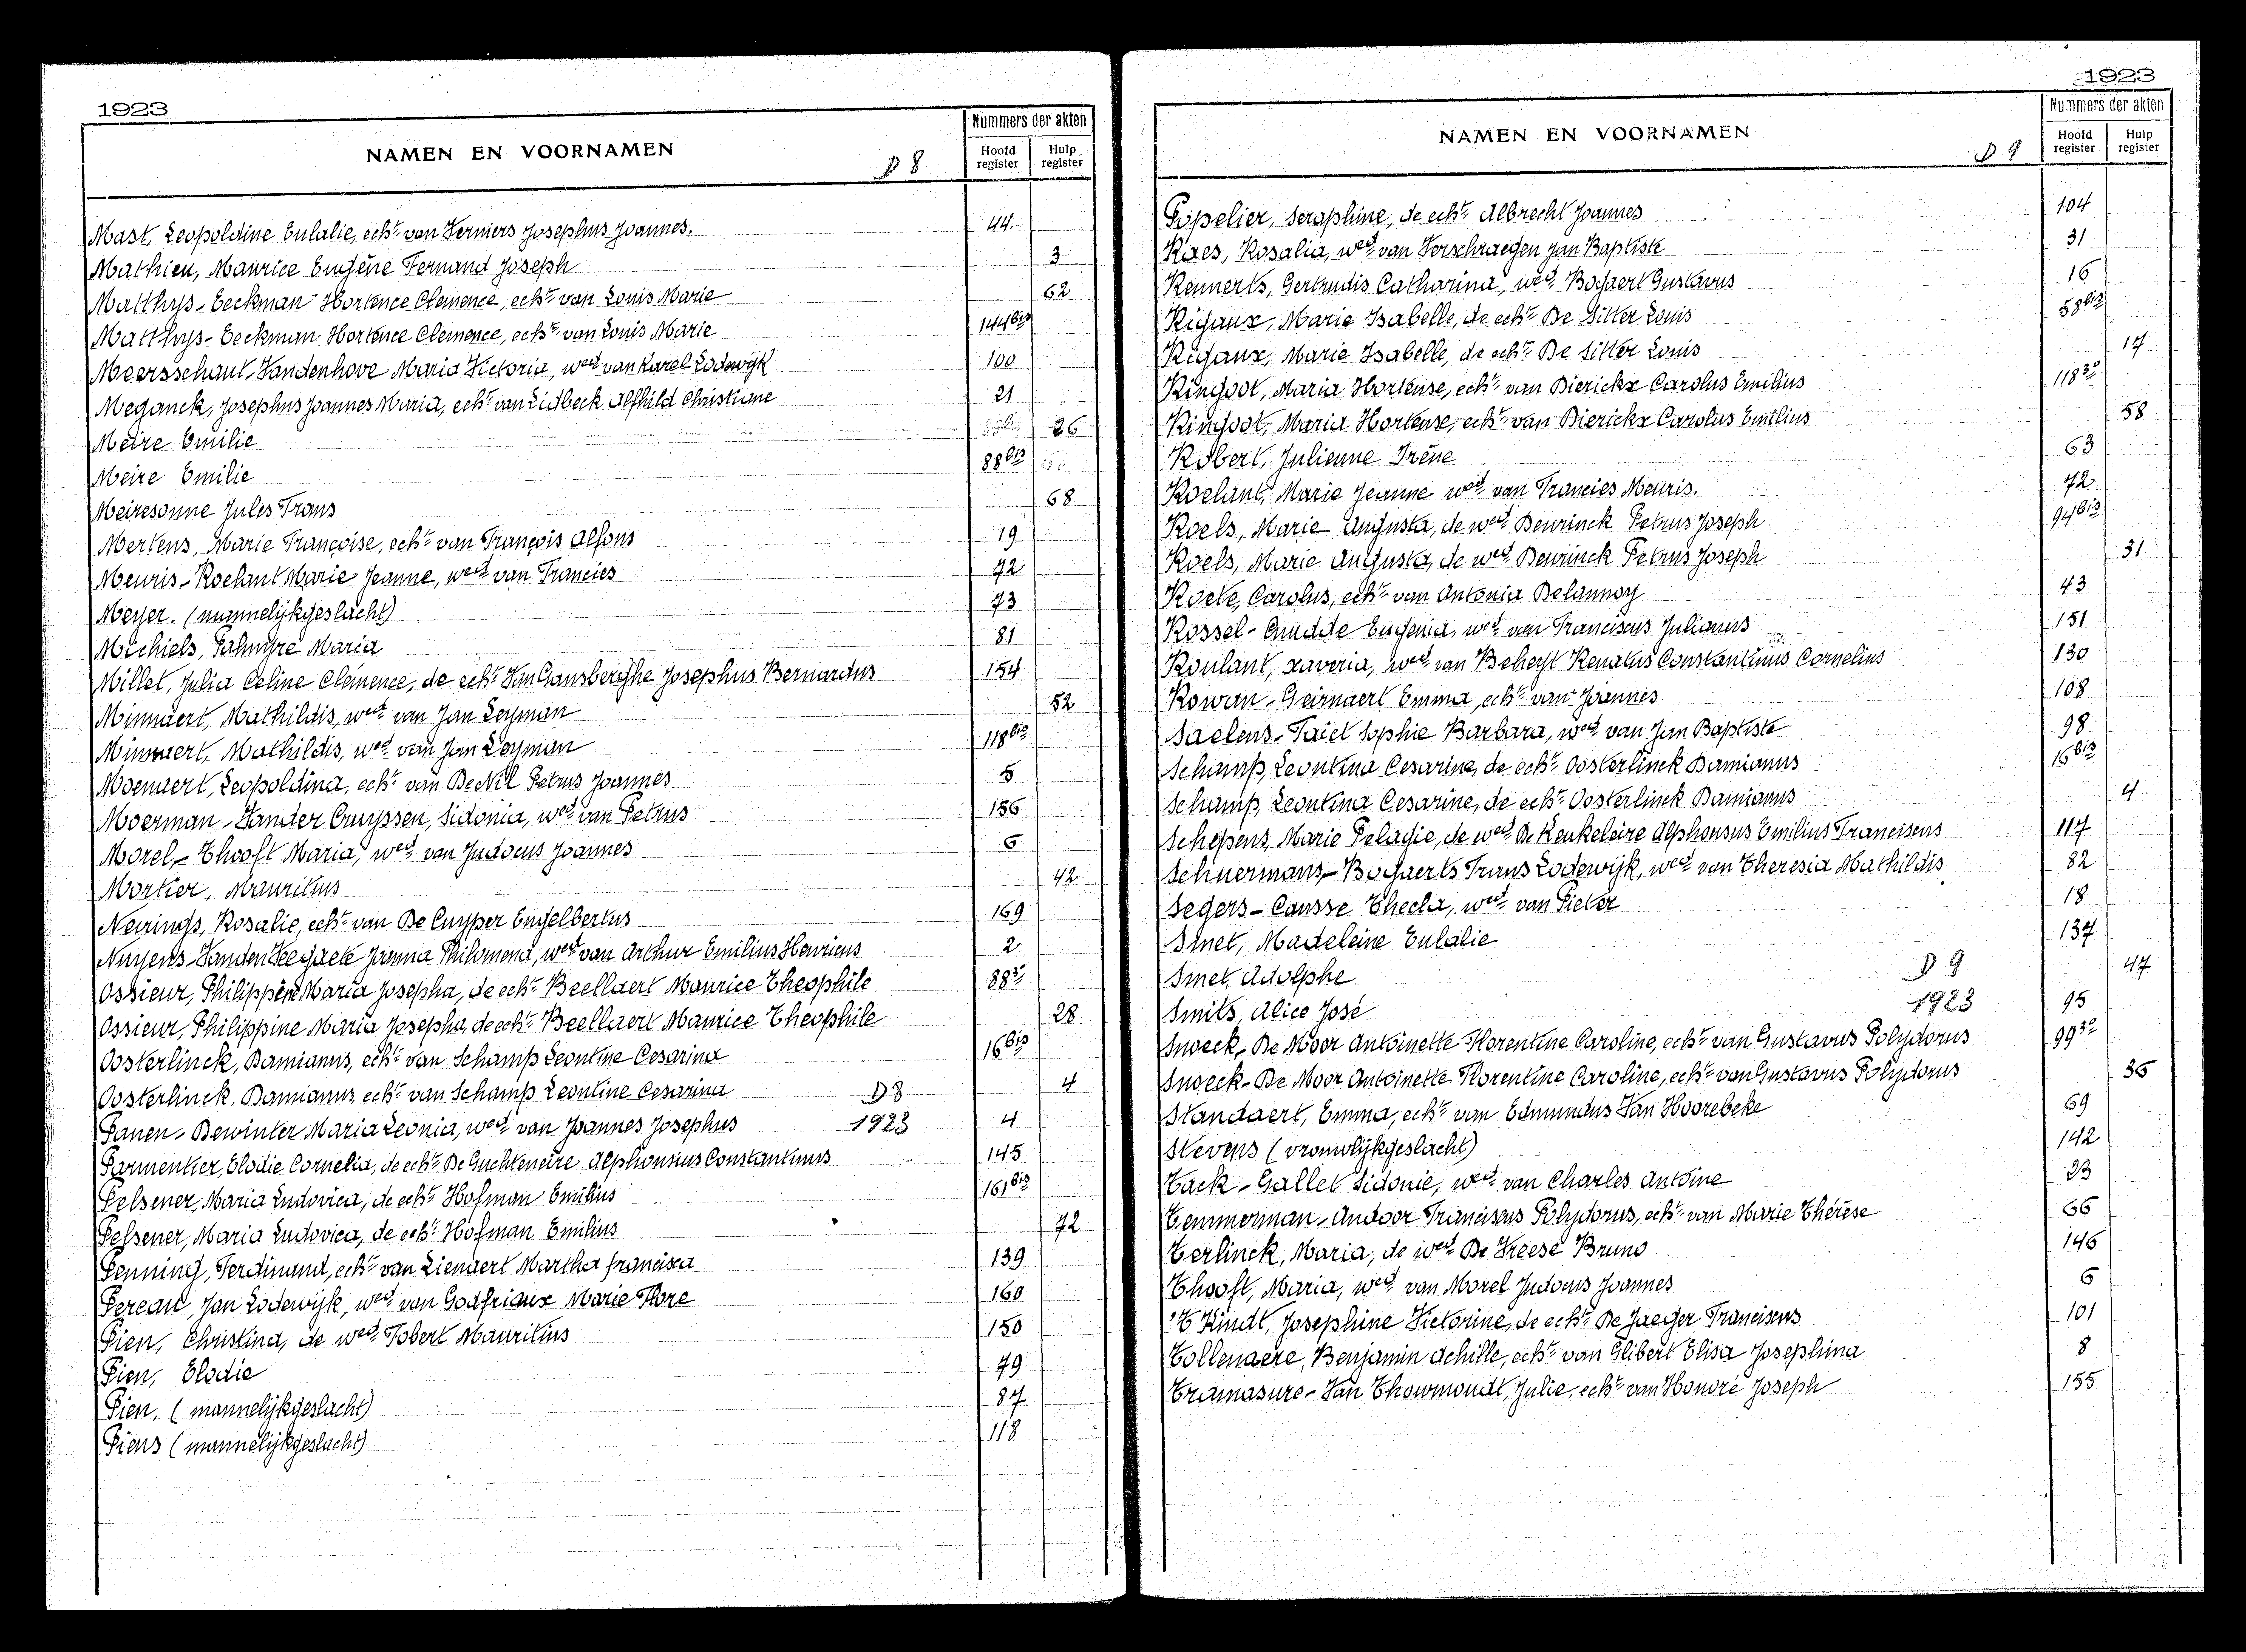 1923
NAMEN EN VOORNAMEN
D 8
Nummers der akten
Hoofd register
Hulp register
Mast, Leopoldine Eulalie, echt. van Verniers Josephus Joannes. 44
Mathieu, Maurice Eugène Fernand Joseph 3
Matthys-Eeckman Hortence Clemence, echt. van Louis Marie 62
Matthys-Eeckman Hortence Clemence, echt. van Louis Marie 144bis
Meersschaut-Vandenhove Maria Victoria, wed. van Karel Lodewijk 100
Meganck, Josephus Joannes Maria, echt. van Lidbeck Alfhild Christiane 21
Meire Emilie 26
Meire Emilie 88bis
Meiresonne Jules Frans 68
Mertens, Marie Françoise, echt. van François Alfons 19
Meuris-Roelant Marie Jeanne, wed. van Francies 72
Meyer. (mannelijkgeslacht) 73
Michiels, Palmyre Maria 81
Millet, Julia Celine Clémence, de echt. Van Gansberghe Josephus Bernardus 154
Minnaert, Mathildis, wed. van Jan Leyman 52
Minnaert, Mathildis, wed. van Jan Leyman 118bis
Moenaert, Leopoldina, echt. van De Nil Petrus Joannes 5
Moerman-Vander Cruyssen, Sidonia, wed. van Petrus 156
Morel-Thooft Maria, wed. van Judocus Joannes 6
Mortier, Mauritius 42
Neirings, Rosalie, echt. van De Cuyper Engelbertus 169
Nuyens-Vanden Veegaete Joanna Philomena, wed. van Arthur Emilius Henricus 2
Ossieur, Philippine Maria Josepha, de echt. Beellaert Maurice Theophile 88
Ossieur, Philippine Maria Josepha, de echt. Beellaert Maurice Theophile 28
Oosterlinck, Damianus, echt. van Schamp Leontine Cesarina 16bis
Oosterlinck, Damianus, echt. van Schamp Leontine Cesarina D8 4
Panen-Dewinter Maria Leonia, wed. van Joannes Josephus 1923 4
Parmentier, Elodie Cornelia, de echt. De Guchteneire Alphonsius Constantinus 145
Pelsener, Maria Ludovica, de echt. Hofman Emilius 161bis
Pelsener, Maria Ludovica, de echt. Hofman Emilius 72
Penning, Ferdinand, echt. van Lienaert Martha francisca 139
Pereau, Jan Lodewijk, wed. van Godfriaux Marie Flore 160
Pien, Christina, de wed. Tobert Mauritius 150
Pien, Elodie 79
Pien, (mannelijkgeslacht) 87
Piens (mannelijkgeslacht) 118
1923
NAMEN EN VOORNAMEN
D 9
Nummers der akten
Hoofd register
Hulp register
Popelier, Seraphine, de echt. Albrecht Joannes 104
Raes, Rosalia, wed. van Verschraegen Jan Baptiste 31
Rennerts, Gertrudis Catharina, wed. Bogaert Gustavus 16
Rigaux, Marie Isabelle, de echt. De Sitter Louis 58bis
Rigaux, Marie Isabelle, de echt. De Sitter Louis 17
Ringoot, Maria Hortense, echt. van Dierickx Carolus Emilius 118
Ringoot, Maria Hortense, echt. van Dierickx Carolus Emilius 58
Robert, Julienne Irène 63
Roelant, Marie Jeanne wed. van Francies Meuris. 72
Roels, Marie Augusta, de wed. Deurinck Petrus Joseph 94bis
Roels, Marie Augusta, de wed. Deurinck Petrus Joseph 31
Roete, Carolus, echt. van Antonia Delannoy 43
Rossel-Cnudde Eugenia, wed. van Franciscus Julianus 151
Roulant, Xaveria, wed. van Beheyt Renatus Constantinus Cornelius 130
Rowan-Geirnaert Emma, echt. van Joannes 108
Saelens-Taict Sophie Barbara, wed. van Jan Baptiste 98
Schamp, Leontina Cesarine, de echt. Oosterlinck Damianus 16bis
Schamp, Leontina Cesarine, de echt. Oosterlinck Damianus 4
Schepens, Marie Pelagie, de wed. De Keukeleire Alphonsus Emilius Franciscus 117
Schuermans-Bogaerts Frans Lodewijk, wed. van Theresia Mathildis 82
Segers-Causse Thecla, wed. van Pieter 18
Smet, Madeleine Eulalie 137
Smet, Adolphe D 9 47
Smits, Alice José 1923 95
Snoeck-De Moor Antoinette Florentine Caroline, echt. van Gustavus Polydorus 99
Snoeck-De Moor Antoinette Florentine Caroline, echt. van Gustavus Polydorus 36
Standaert, Emma, echt. van Edmundus Van Hoorebeke 69
Stevens (vrouwlijkgeslacht) 142
Tack-Gallet Sidonie, wed. van Charles Antoine 23
Temmerman-Audoor Franciscus Polydorus, echt. van Marie Thérèse 66
Terlinck, Maria, de wed. De Vreese Bruno 146
Thooft, Maria, wed. van Morel Judocus Joannes 6
'T Kindt, Josephine Victorine, de echt. De Jaeger Franciscus 101
Tollenaere, Benjamin Achille, echt. van Glibert Elisa Josephina 8
Tramasure-Van Thowmoudt, Julie, echt. van Honoré Joseph 155